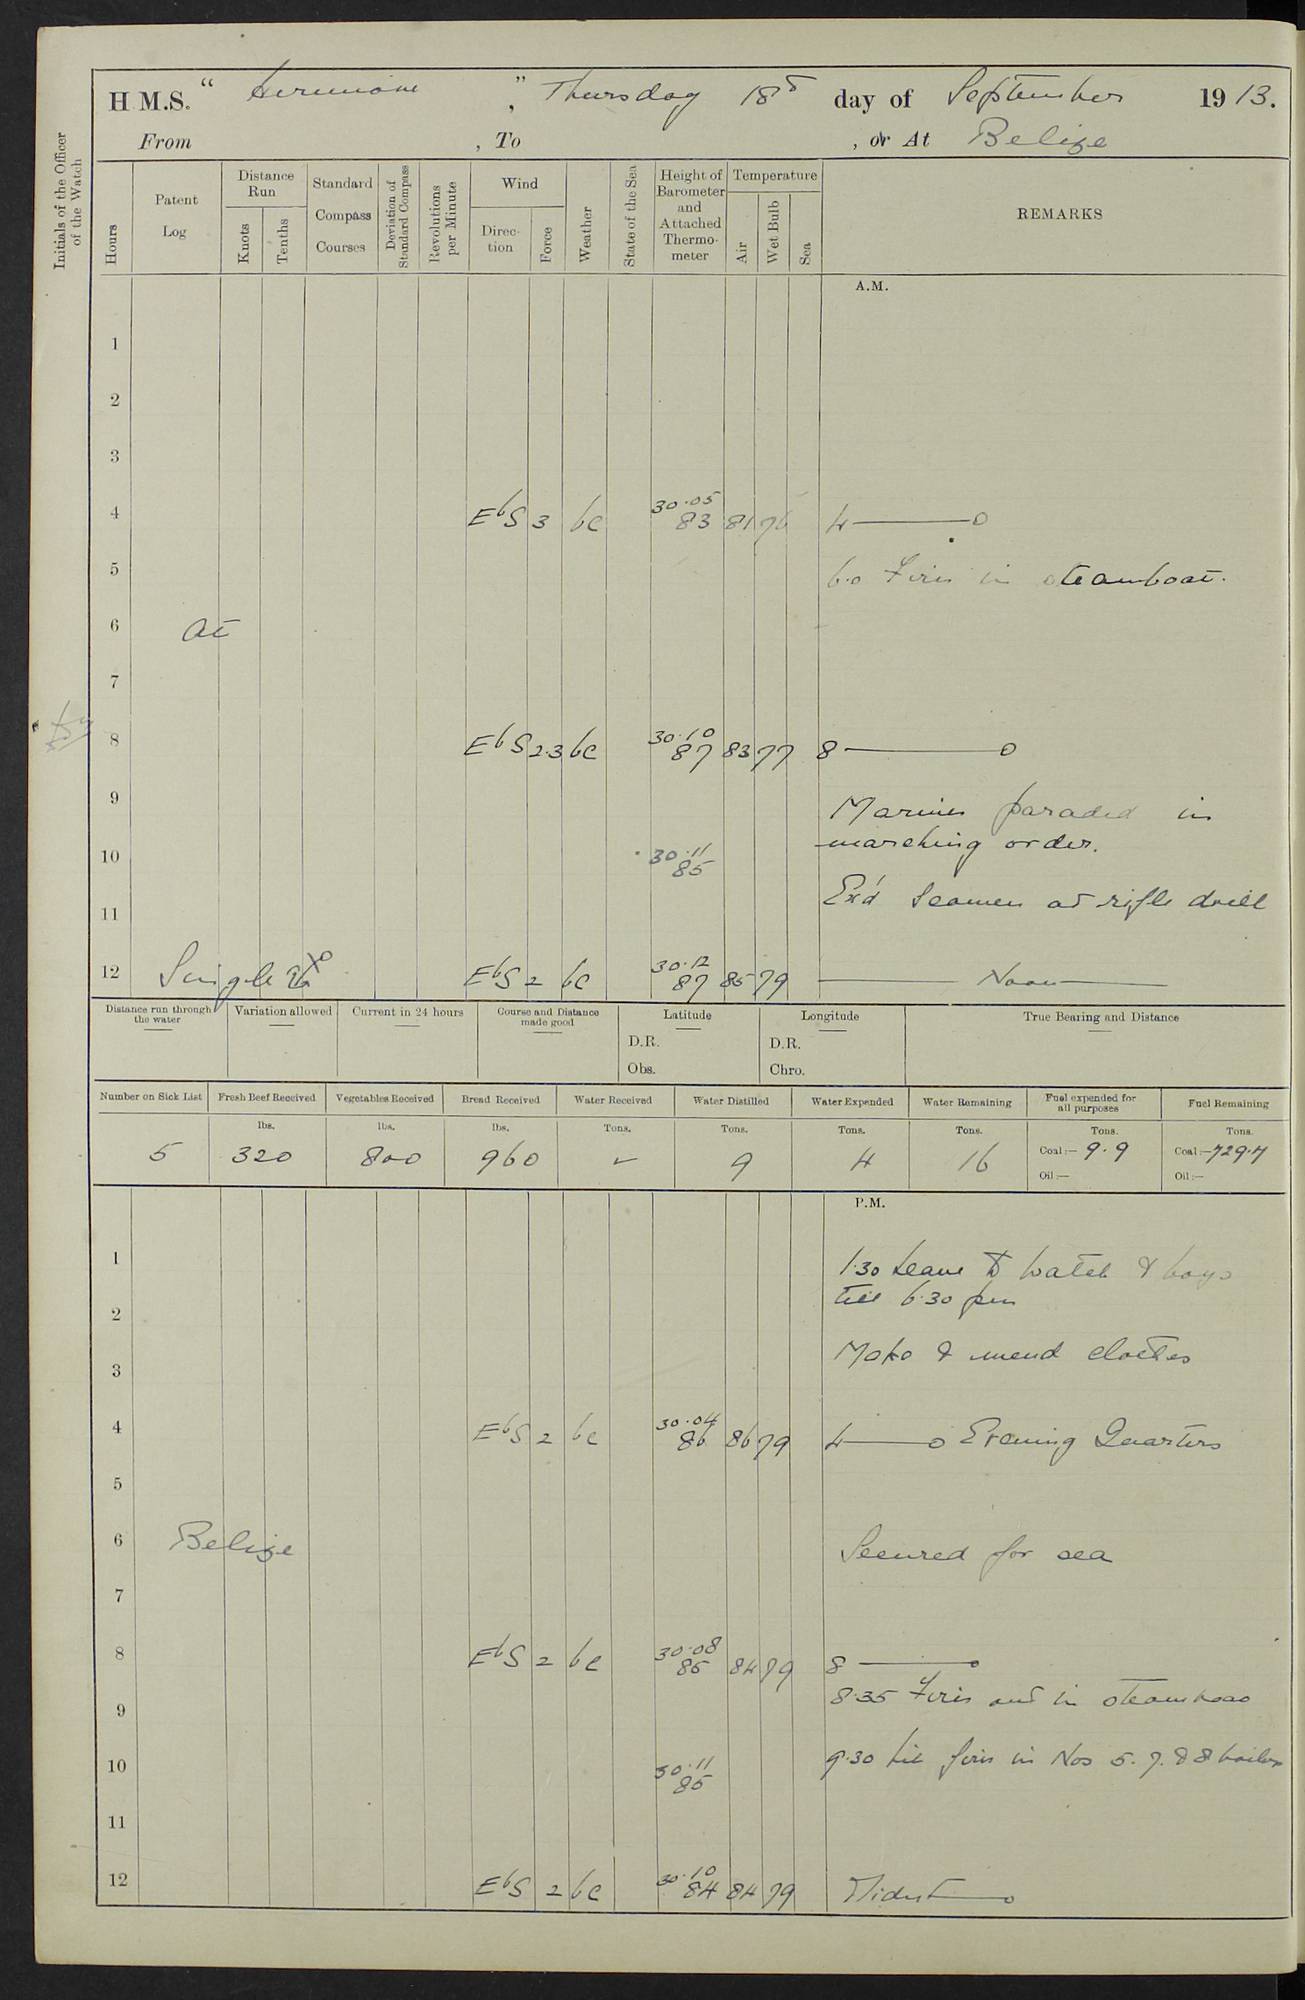 H.M.S. “ Hermione ”, Thursday 18th day of September 1913.
From , To , or At Belize
Initials of the Officer of the Watch
Hours
Patent Log
Distance Run
Knots
Tenths
Standard Compass Courses
Deviation of Standard Compass
Revolutions per Minute
Wind
Direction
Force
Weather
State of the Sea
Height of Barometer and Attached Thermometer
Temperature
Air
Wet Bulb
Sea
REMARKS
A.M.
1
2
3
4 EbS 3 bc 30.05 83 81 76 4
5 6.0 Fires in steamboat.
6 At
7
8 EbS 2.3 bc 30.10 87 83 77 8
9 Marines paraded in
marching order.
10 30.11 85
11 Ex'd Seamen at rifle drill
12 Single EbS 2 bc 30.12 87 85 79 Noon
Distance run through the water
Variation allowed
Current in 24 hours
Course and Distance made good
Latitude
D.R.
Obs.
Longitude
D.R.
Chro.
True Bearing and Distance
Number on Sick List
Fresh Beef Received
Vegetables Received
Bread Received
Water Received
Water Distilled
Water Expended
Water Remaining
Fuel expended for all purposes
Fuel Remaining
lbs. lbs. lbs. Tons. Tons. Tons. Tons. Tons. Tons.
5 320 800 960 9 4 16 Coal:— 9.9 Coal:— 729.7
Oil:— Oil:—
P.M.
1 1.30 Leave to watch & boys
till 6.30 pm
2
3 Make & mend clothes
4 EbS 2 bc 30.04 86 86 79 4 Evening Quarters
5
6 Belize Secured for sea
7
8 EbS 2 bc 30.08 85 84 79 8
8.35 Fires out in steamboat
9
10 30.11 85 9.30 Lit fires in Nos 5. 7. & 8 boilers
11
12 EbS 2 bc 30.10 84 84 79 Midnt